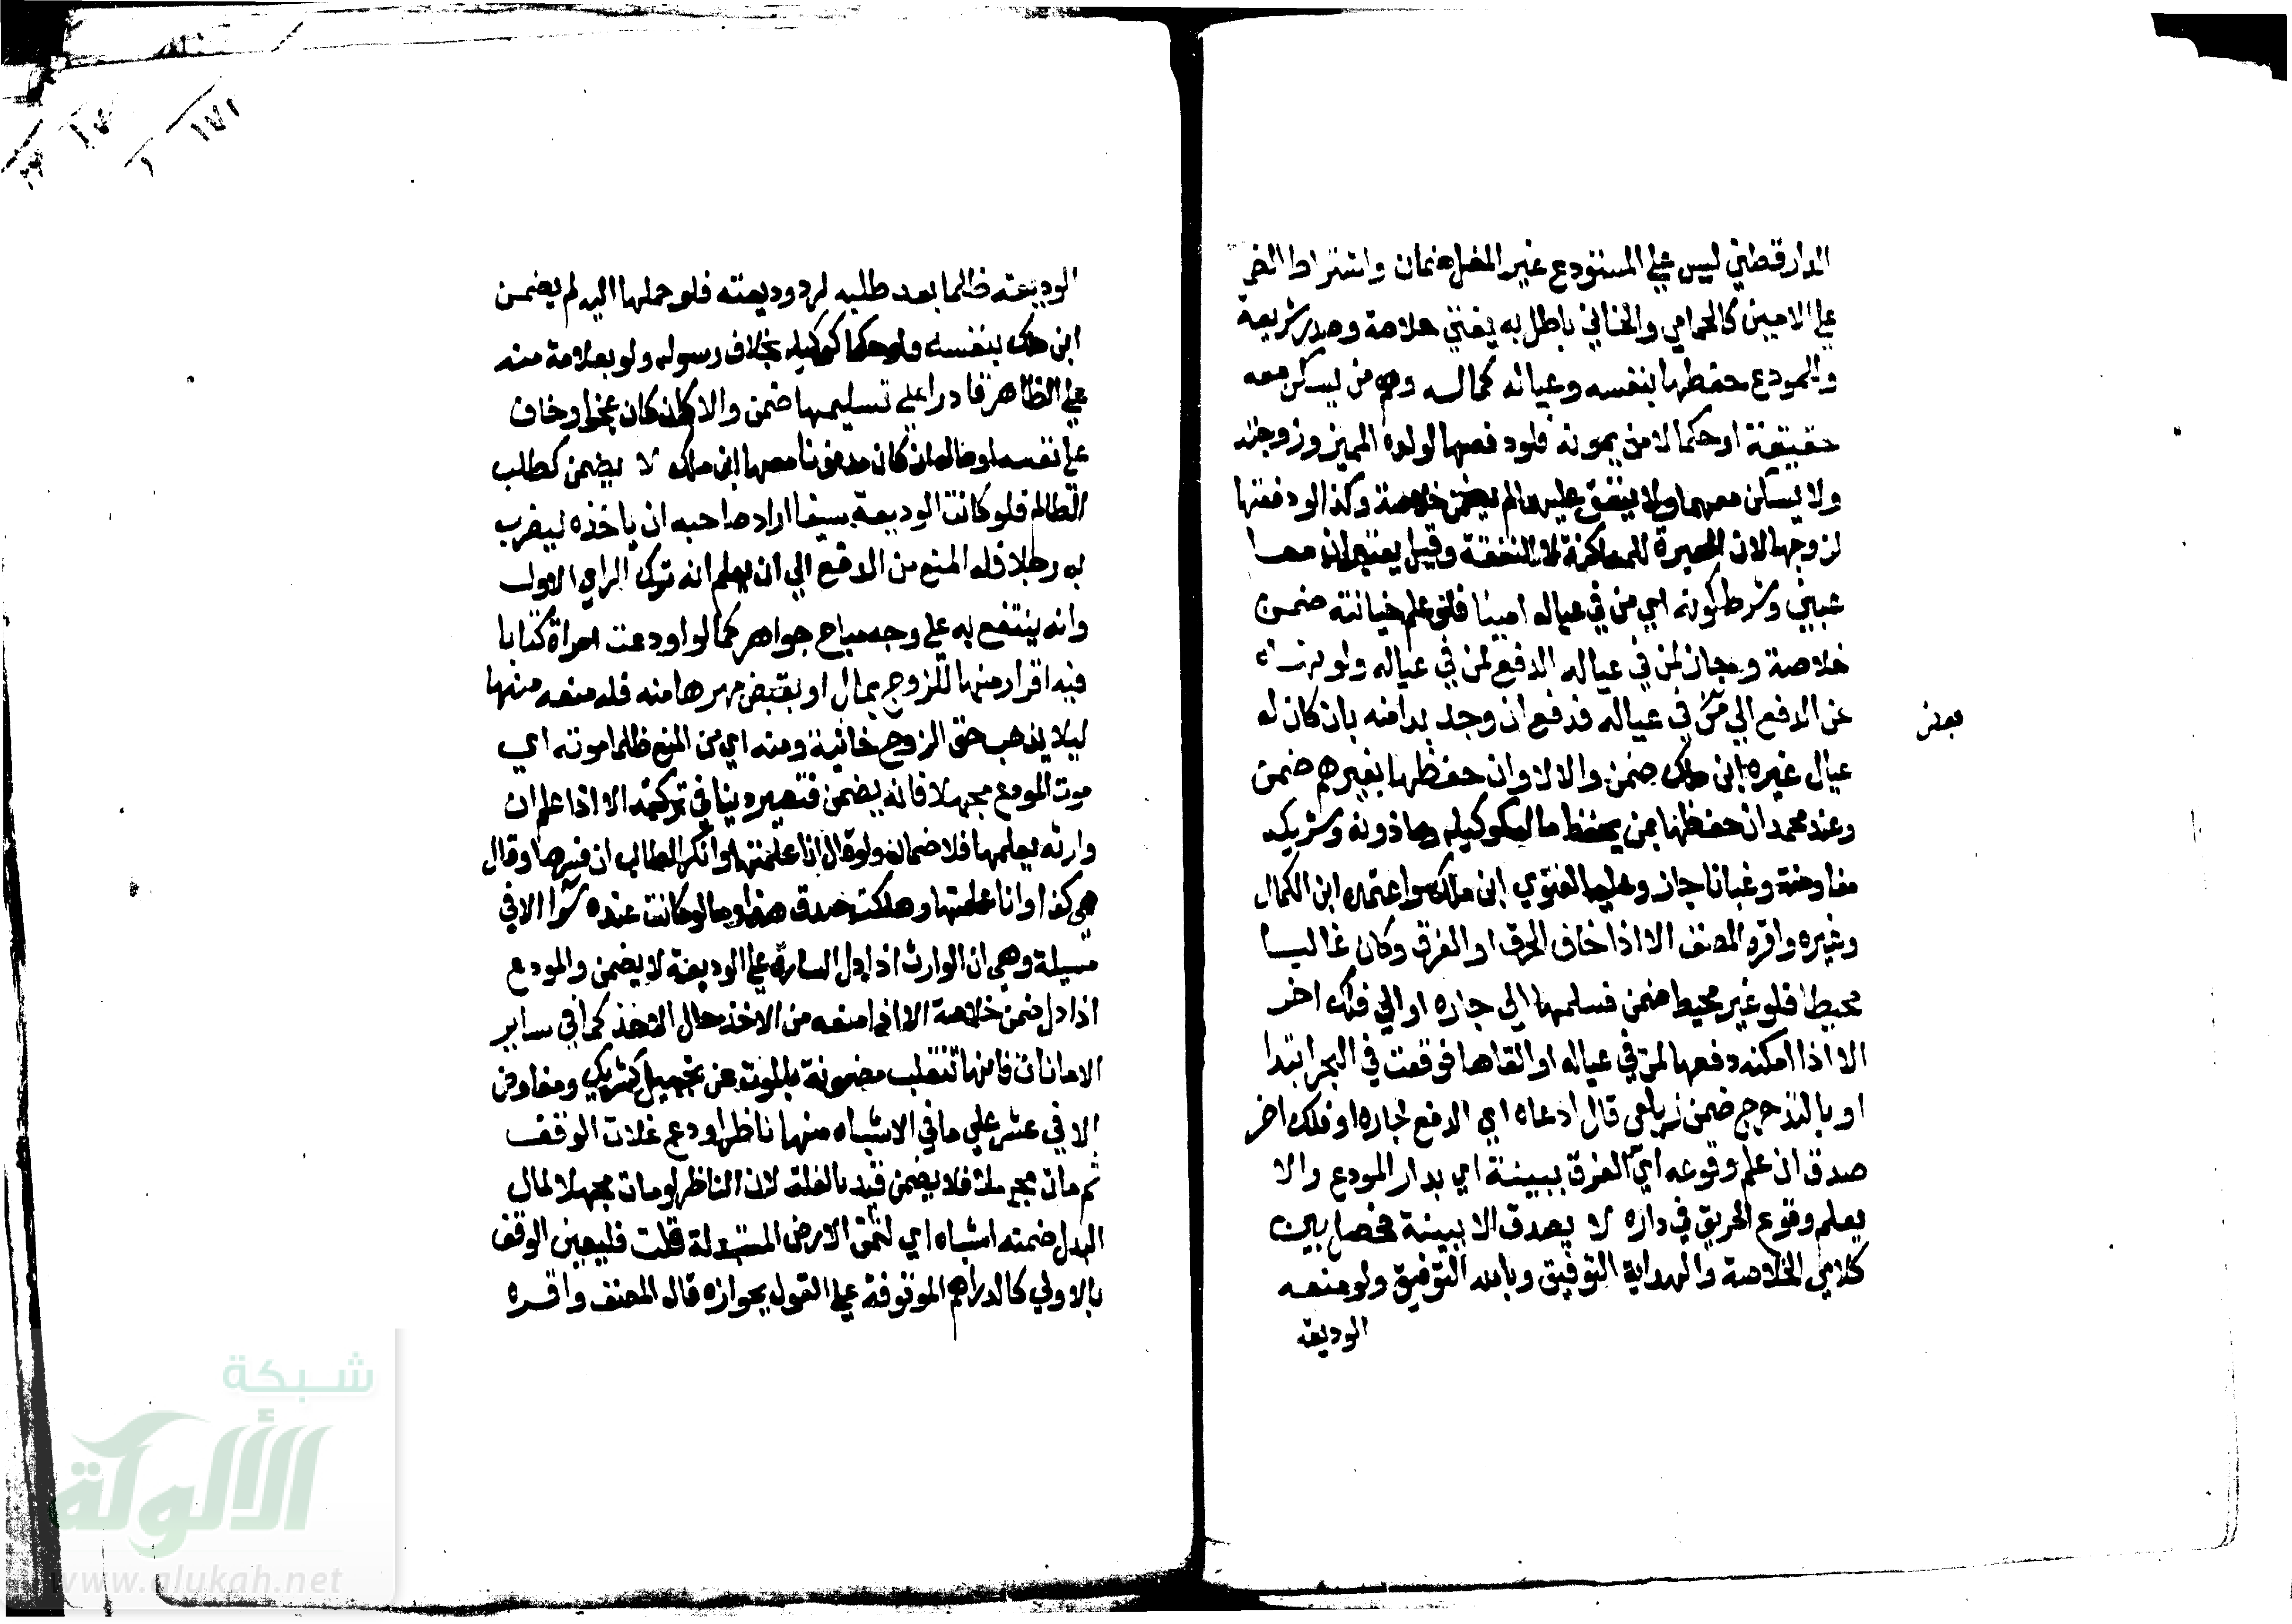 الدارقطني ليس علي المستودع غير المغل ضمان واشتراط الضمـ
علي الامين كالحمامي والخاني باطل به يفتي خلاصة وصدر شريعة
وللمودع حفظها بنفسه وعياله كماله وهم من يسكن معه
حقيقة او حكما لا من يمونه فلو دفعها لولده المميز وزوجته
ولا يسكن معهما ولا ينفق عليهما لم يضمن خلاصة وكذا لو دفعتها
لزوجها لان العبرة للمساكنة لا للنفقة وقيل يعتبران معا
عيني وشرط كونه اي من في عياله امينا فلو علم خيانته ضمن
خلاصة وجاز لمن في عياله الدفع لمن في عياله ولو نهاه
عن الدفع الي من في عياله فدفع ان وجد بدا منه بان كان له
بعض
عيال غيره ابن ملك ضمن والا لا وان حفظها بغيرهم ضمن
وعند محمد ان حفظها بمن يحفظ ماله كوكيله وماذونه وشريكه
مفاوضة وعنانا جاز وعليه الفتوي ابن ملك واعتمده ابن الكمال
وغيره واقره المصنف الا اذا خاف الحرق او الغرق وكان غالبا
محيطا فلو غير محيط ضمن فسلمها الي جاره او الي فلك اخر
الا اذا امكنه دفعها لمن في عياله او القاها فوقعت في البحر ابتدا
او بالتدحرج ضمن زيلعي قال ادعاه اي الدفع لجاره او فلك اخر
صدق ان علم وقوعه اي الغرق ببينة اي بدار المودع والا
يعلم وقوع الحريق في داره لا يصدق الا ببينة فحصل بين
كلامي الخلاصة والهداية التوفيق وبالله التوفيق ولو منعه
الوديعة
الوديعة ظالما بعد طلبه لرد وديعته فلو حملها اليه لم يضمن
ابن ملك بنفسه ولو حكما كوكيله بخلاف رسوله ولو بعلامة منه
علي الظاهر قادرا علي تسليمها ضمن والا بان كان عاجزا وخاف
علي نفسه او ماله بان كان مدفونا معها ابن ملك لا يضمن كطلب
الظالم فلو كانت الوديعة سيفا اراد صاحبه ان ياخذه ليضرب
به رجلا فله المنع من الدفع الي ان يعلم انه ترك الراي الاول
وانه ينتفع به علي وجه مباح جواهر كما لو اودعت امراة كتابا
فيه اقرار منها للزوج بمال او بقبض مهرها منه فله منعه منها
ليلا يذهب حق الزوج خانية ومنه اي من المنع ظلما موته اي
موت المودع مجهلا فانه يضمن فتصير دينا في تركته الا اذا علم ان
وارثه يعلمها فلا ضمان ولو قال انا علمتها وانكر الطالب ان فسرها وقال
هي كذا وانا علمتها وهلكت صدق هذا وما لو كانت عنده سوا الا في
مسيلة وهي ان الوارث اذا دل السارق علي الوديعة لا يضمن والمودع
اذا دل ضمن خلاصة الا اذا منعه من الاخذ حال الاخذ كما في ساير
الامانات فانها تنقلب مضمونة بالموت عن تجهيل كشريك ومفاوض
الا في عشر علي ما في الاشباه منها ناظر اودع غلات الوقف
ثم مات مجهلا فلا يضمن قيد بالغلة لان الناظر لو مات مجهلا لمال
البدل ضمنه اشباه اي لثمن الارض المستبدلة قلت فليعين الوقف
بالاولي كالدراهم الموقوفة علي القول بجوازه قال المصنف واقره
شبكة
الألوكة
www.alukah.net